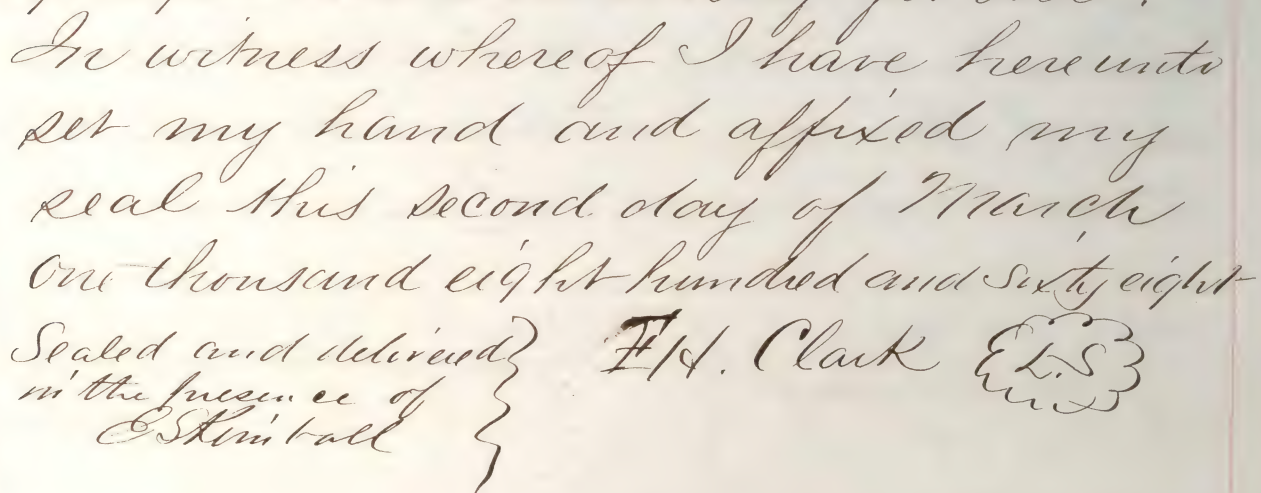 In witness whereof I have hereunto
set my hand and affixed my
seal this second day of March
one thousand eight hundred and sixty eight
Sealed and delivered
in the presence of
E S Kimball
F H. Clark L.S